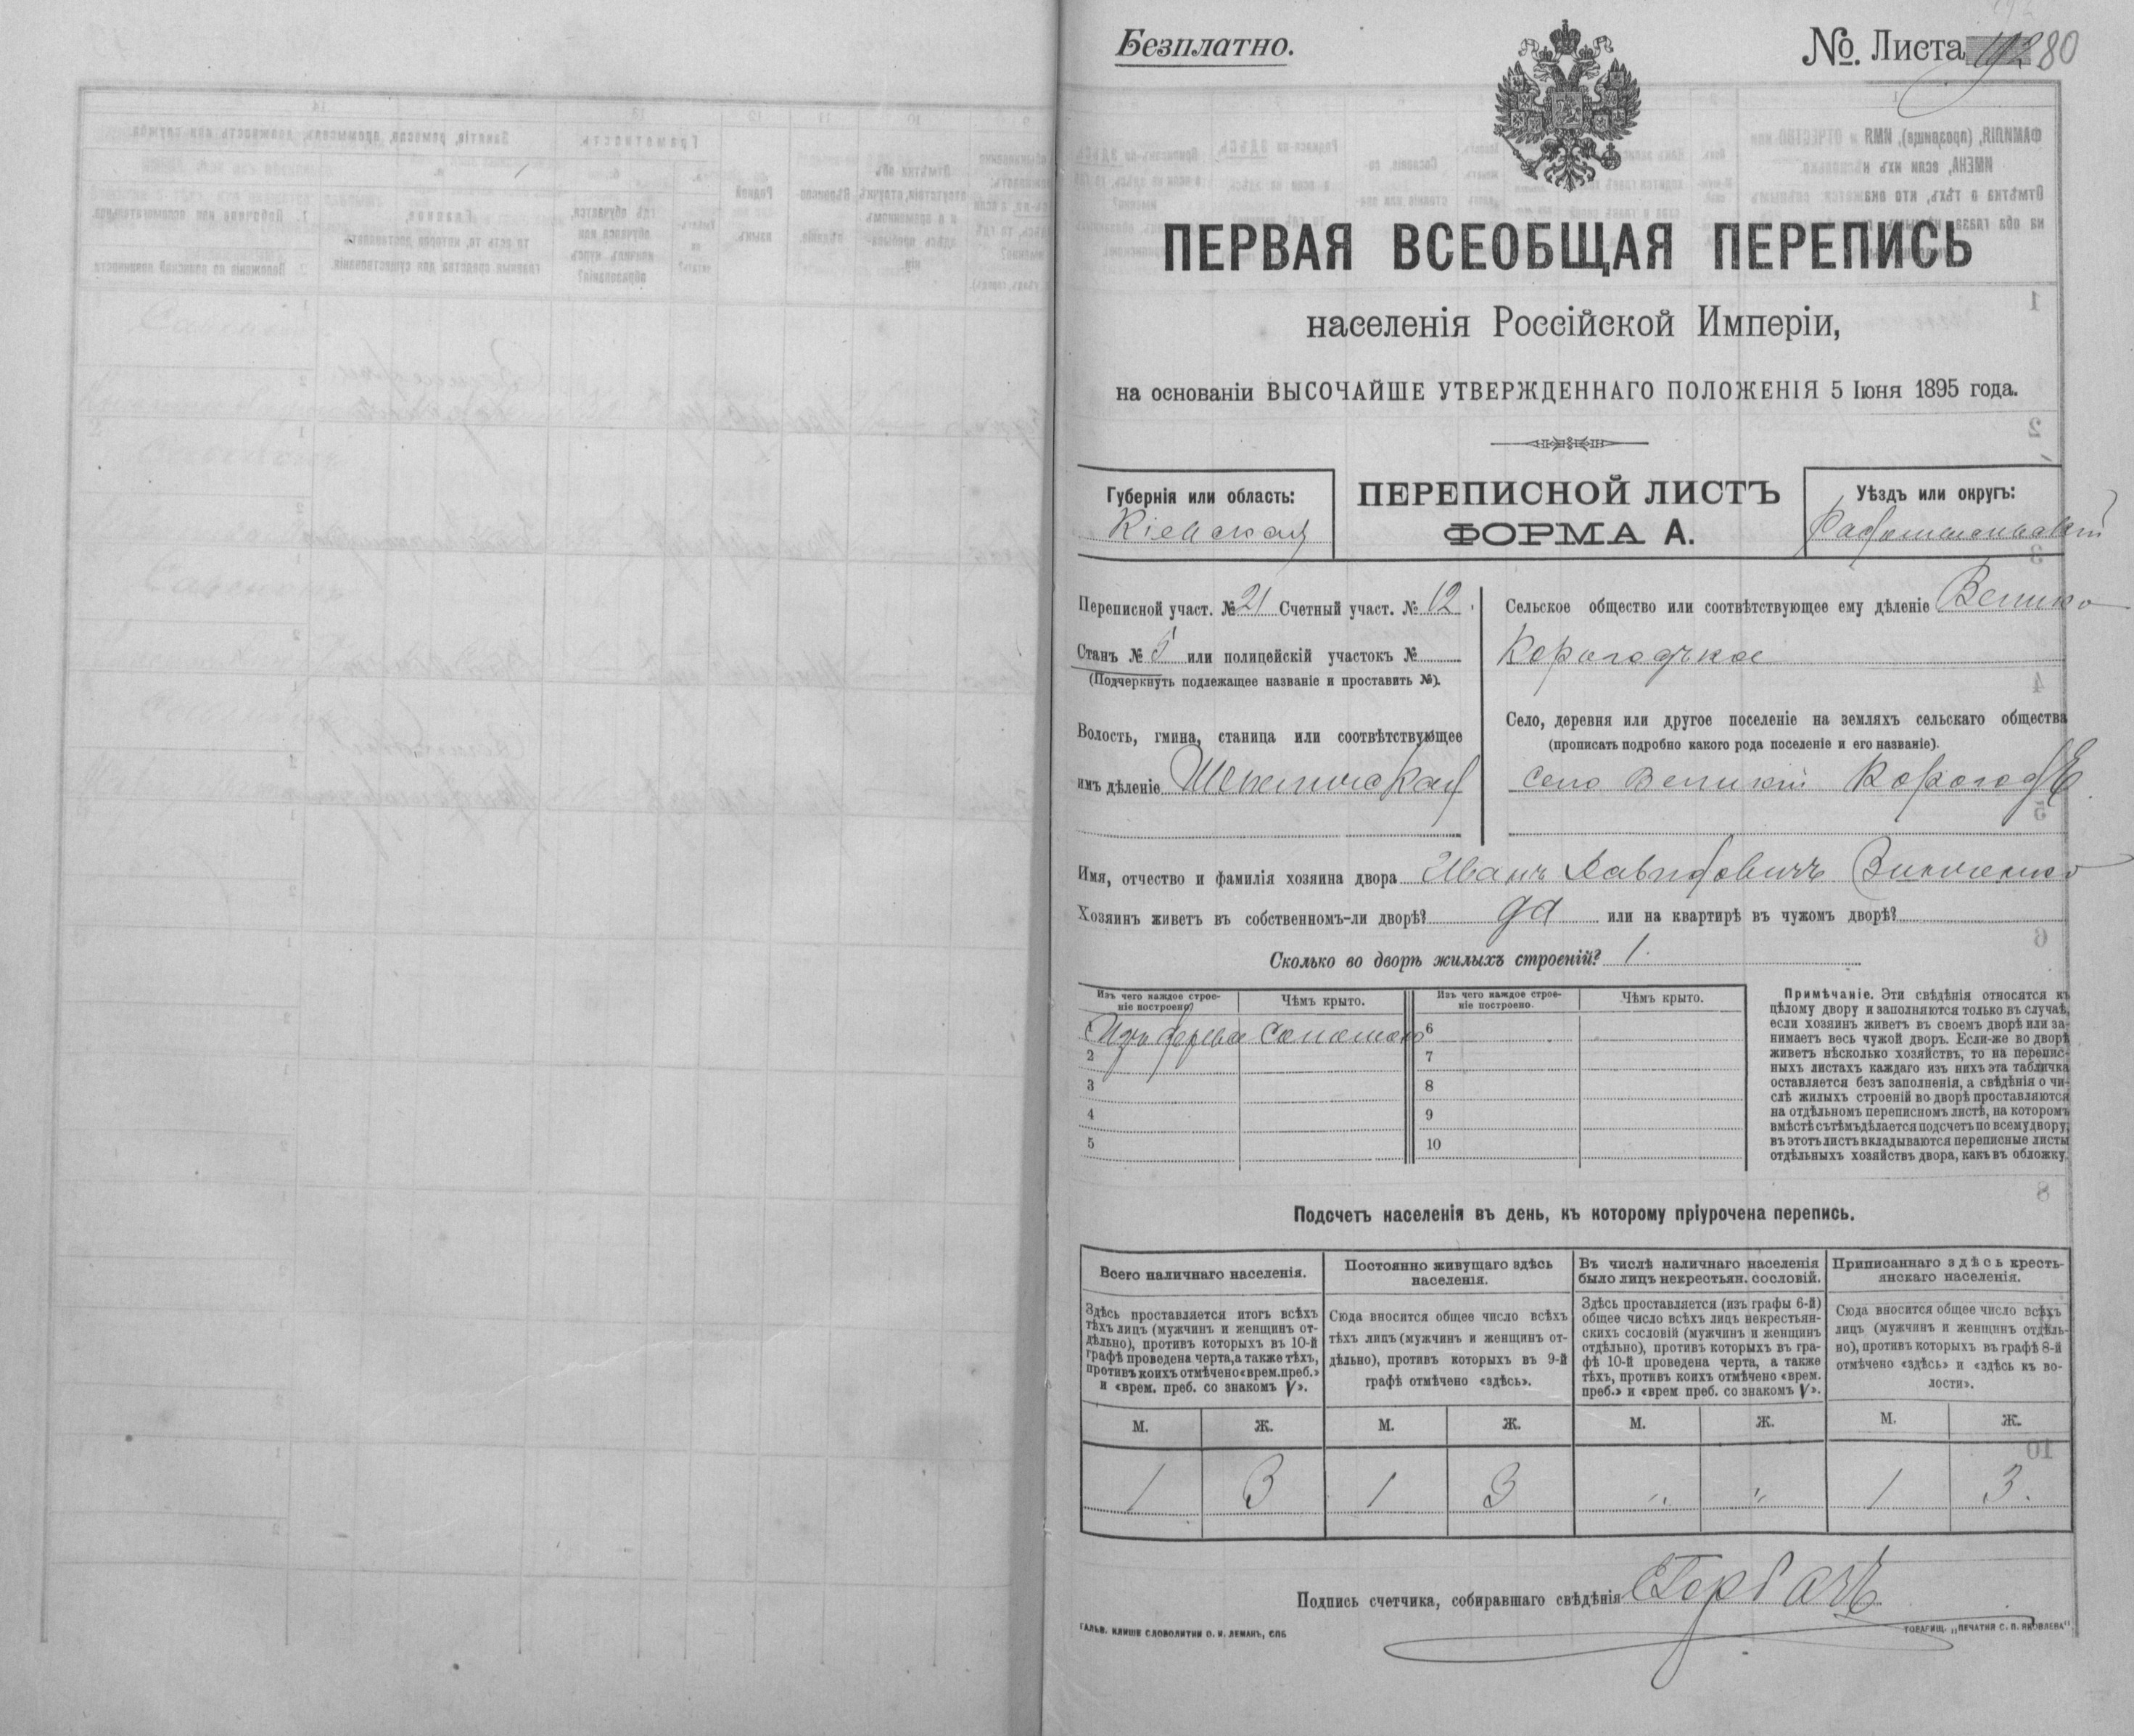 Безплатно.
№. Листа 80
ПЕРВАЯ ВСЕОБЩАЯ ПЕРЕПИСЬ
населенія Россійской Имперіи,
на основаніи ВЫСОЧАЙШЕ УТВЕРЖДЕННАГО ПОЛОЖЕНІЯ 5 Іюня 1895 года.
Губернія или область:
Кіевская
ПЕРЕПИСНОЙ ЛИСТЪ
ФОРМА А.
Уѣздъ или округъ:
Радомысльскій
Переписной участ. № 21 Счетный участ. № 12
Станъ № 5 или полицейскій участокъ №
(Подчеркнуть подлежащее названіе и проставить №).
Волость, гмина, станица или соотвѣтствующее
имъ дѣленіе Шепеличская
Сельское общество или соотвѣтствующее ему дѣленіе Велико
Корогодское
Село, деревня или другое поселеніе на земляхъ сельскаго общества
(прописать подробно какого рода поселеніе и его названіе).
село Великій Корогодъ
Имя, отчество и фамилія хозяина двора Иванъ Давидовичъ
Хозяинъ живетъ въ собственномъ-ли дворѣ? да или на квартирѣ въ чужомъ дворѣ?
Сколько во дворѣ жилыхъ строеній? 1.
Изъ чего каждое строе-
ніе построено?
Чѣмъ крыто.
Изъ чего каждое строе-
ніе построено.
Чѣмъ крыто.
1 Изъ дерева соломою 6
2 7
3 8
4 9
5 10
Примѣчаніе. Эти свѣдѣнія относятся къ
цѣлому двору и заполняются только въ случаѣ,
если хозяинъ живетъ въ своемъ дворѣ или за-
нимаетъ весь чужой дворъ. Если-же во дворѣ
живетъ нѣсколько хозяйствъ, то на перепис-
ныхъ листахъ каждаго изъ нихъ эта табличка
оставляется безъ заполненія, а свѣдѣнія о чи-
слѣ жилыхъ строеній во дворѣ проставляются
на отдѣльномъ переписномъ листѣ, на которомъ
вмѣстѣ съ тѣмъ дѣлается подсчетъ по всему двору;
въ этотъ листъ вкладываются переписные листы
отдѣльныхъ хозяйствъ двора, какъ въ обложку.
Подсчетъ населенія въ день, къ которому пріурочена перепись.
Всего наличнаго населенія.
Здѣсь проставляется итогъ всѣхъ
тѣхъ лицъ (мужчинъ и женщинъ от-
дѣльно), противъ которыхъ въ 10-й
графѣ проведена черта, а также тѣхъ,
противъ коихъ отмѣчено «врем. преб.»
и «врем. преб. со знакомъ V».
Постоянно живущаго здѣсь
населенія.
Сюда вносится общее число всѣхъ
тѣхъ лицъ (мужчинъ и женщинъ от-
дѣльно), противъ которыхъ въ 9-й
графѣ отмѣчено «здѣсь».
Въ числѣ наличнаго населенія
было лицъ некрестьян. сословій.
Здѣсь проставляется (изъ графы 6-й)
общее число всѣхъ лицъ некрестьян-
скихъ сословій (мужчинъ и женщинъ
отдѣльно), противъ которыхъ въ гра-
фѣ 10-й проведена черта, а также
тѣхъ, противъ коихъ отмѣчено «врем.
преб.» и «врем преб. со знакомъ V».
Приписаннаго здѣсь кресть-
янскаго населенія.
Сюда вносится общее число всѣхъ
лицъ (мужчинъ и женщинъ отдѣль-
но), противъ которыхъ въ графѣ 8-й
отмѣчено «здѣсь» и «здѣсь къ во-
лости».
М. Ж. М. Ж. М. Ж. М. Ж.
1 3 1 3 " " 1 3.
Подпись счетчика, собиравшаго свѣдѣнія
ГАЛЬВ. КЛИШЕ СЛОВОЛИТНИ О. И. ЛЕМАНЪ, СПБ
ТОВАРИЩ. „ПЕЧАТНЯ С. П. ЯКОВЛЕВА"